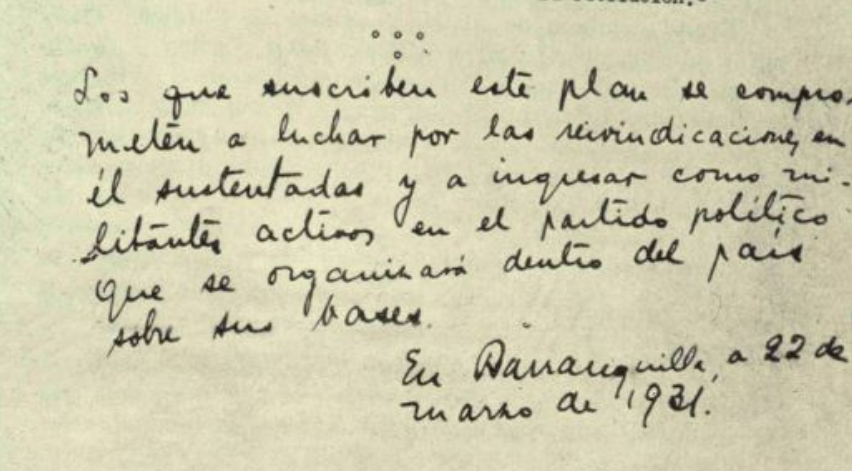 Los que suscriben este plan se compro-
meten a luchar por las reivindicaciones en
él sustentadas y a ingresar como mi-
litantes activos en el partido político
que se organizará dentro del país
sobre sus bases.
En Barranquilla, a 22 de
marzo de 1931.